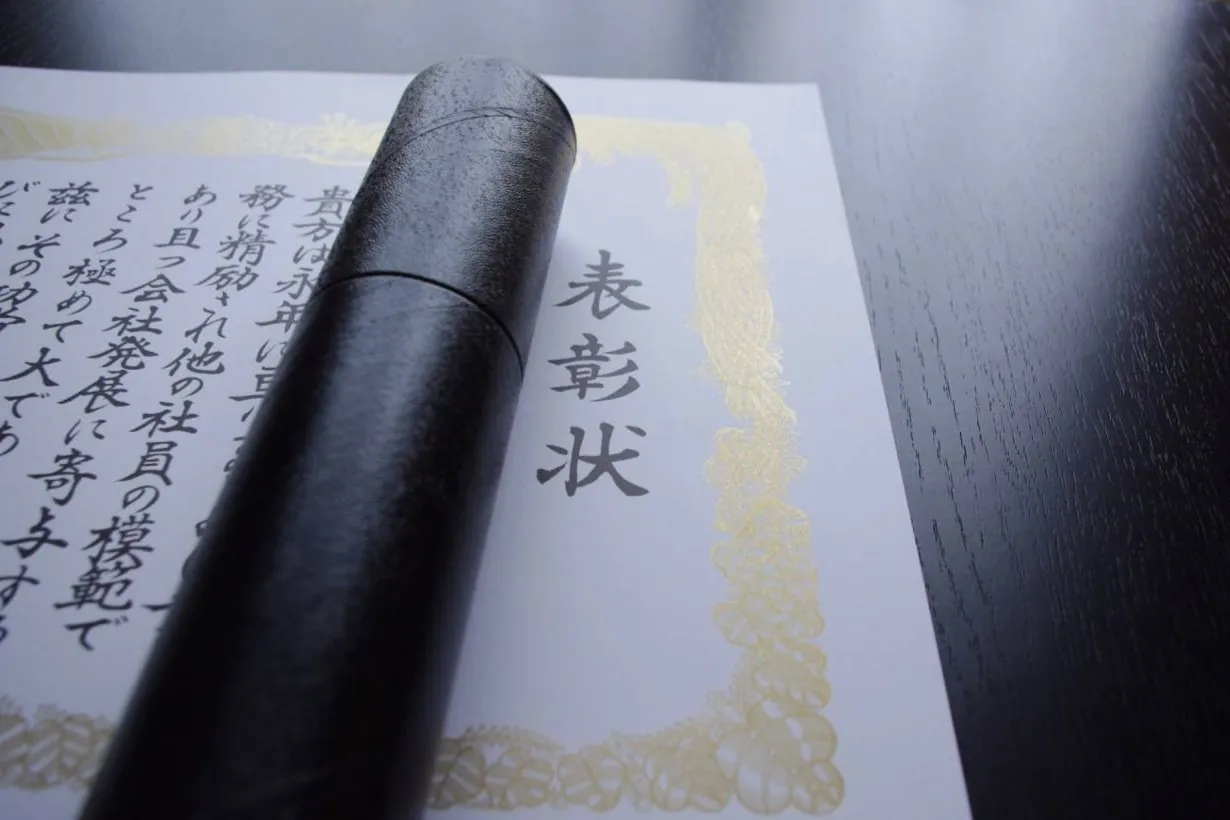 表彰状
貴方は永年に
務に精励され他の社員の模範で
あり且つ会社発展に寄与する
ところ極めて大であ
茲にその功